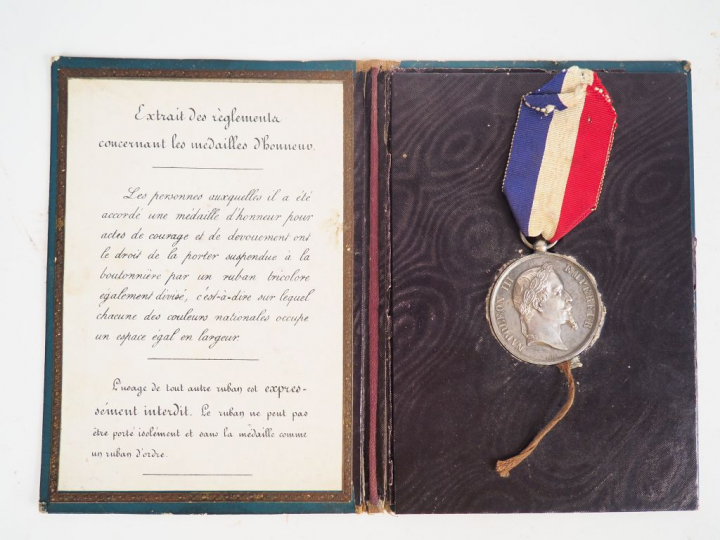 Extrait des règlements
concernant les médailles d'honneur.
Les personnes auxquelles il a été
accordé une médaille d'honneur pour
actes de courage et de dévouement ont
le droit de la porter suspendue à la
boutonnière par un ruban tricolore
également divisé, c'est-à-dire sur lequel
chacune des couleurs nationales occupe
un espace égal en largeur.
L'usage de tout autre ruban est expres-
sément interdit. Le ruban ne peut pas
être porté isolément et sans la médaille comme
un ruban d'ordre.
NAPOLEON III EMPEREUR